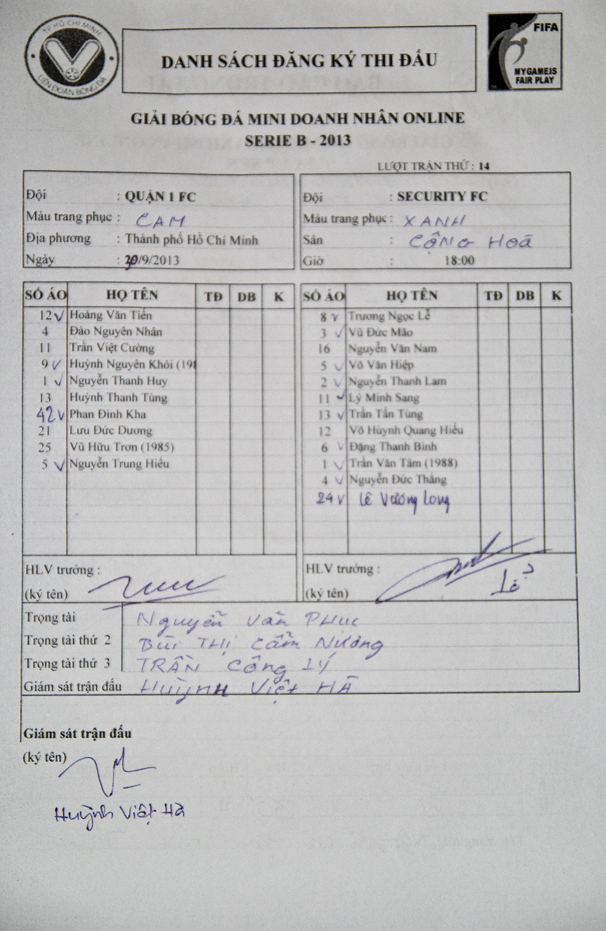 TP HỒ CHÍ MINH
LIÊN ĐOÀN BÓNG ĐÁ
DANH SÁCH ĐĂNG KÝ THI ĐẤU
FIFA
MY GAME IS
FAIR PLAY
GIẢI BÓNG ĐÁ MINI DOANH NHÂN ONLINE
SERIE B - 2013
LƯỢT TRẬN THỨ : 14
Đội : QUẬN 1 FC
Màu trang phục : CAM
Địa phương : Thành phố Hồ Chí Minh
Ngày : /9/2013
Đội : SECURITY FC
Màu trang phục : XANH
Sân : CỘNG HOÀ
Giờ 18:00
SỐ ÁO HỌ TÊN TĐ DB K
12 v Hoàng Văn Tiến
4 Đào Nguyên Nhân
11 Trần Việt Cường
9 v Huỳnh Nguyên Khôi (198
1 v Nguyễn Thanh Huy
13 Huỳnh Thanh Tùng
42 v Phan Đình Kha
21 Lưu Đức Dương
25 Vũ Hữu Trơn (1985)
5 v Nguyễn Trung Hiếu
SỐ ÁO HỌ TÊN TĐ DB K
8 v Trương Ngọc Lễ
3 v Vũ Đức Mão
16 Nguyễn Văn Nam
5 v Võ Văn Hiệp
2 v Nguyễn Thanh Lam
11 v Lý Minh Sang
13 v Trần Tấn Tùng
12 Võ Huỳnh Quang Hiếu
6 v Đặng Thanh Bình
1 v Trần Văn Tâm (1988)
4 v Nguyễn Đức Thắng
24 v Lê Vương Long
HLV trưởng :
(ký tên)
HLV trưởng :
(ký tên)
Trọng tài Nguyễn Văn Phuc
Trọng tài thứ 2 BÙI THỊ Cẩm Nương
Trọng tài thứ 3 TRẦN CÔNG LÝ
Giám sát trận đấu Huỳnh Việt Hà
Giám sát trận đấu
(ký tên)
Huỳnh Việt Hà